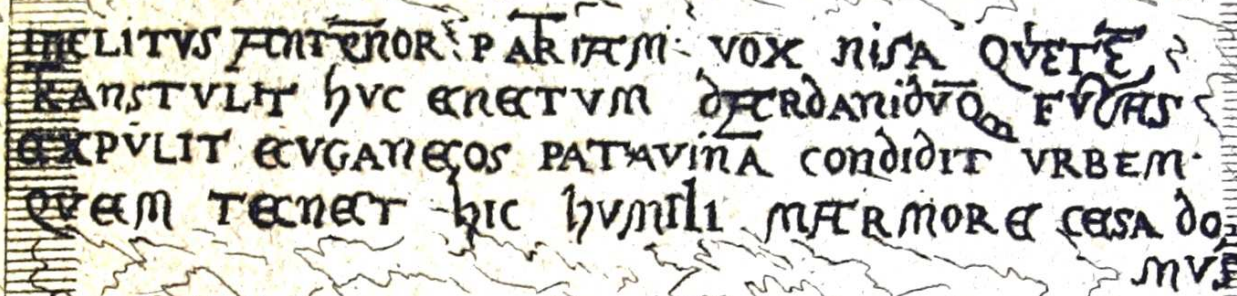 INCLITVS ANTENOR PATRIAM· VOX NISA QVIETĒ
TRANSTVLIT HVC ENETVM DARDANIDVQ̄ FVGAS
EXPVLIT EVGANEOS PATAVINĀ CONDIDIT VRBEM·
QVEM TENET HIC HVMILI MARMORE CESA DO
MVS